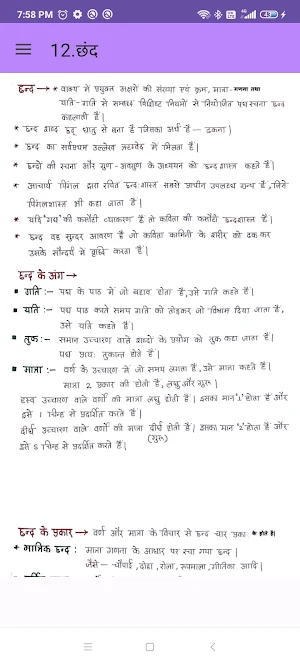 7:58 PM
45
12.छंद
छन्द → * वाक्य में प्रयुक्त अक्षरों की संख्या एवं क्रम, मात्रा-गणना तथा
यति-गति से सम्बद्ध विशिष्ट नियमों से नियोजित पद्य रचना छन्द
कहलाती हैं।
* छन्द शब्द छद् धातु से बना है जिसका अर्थ है — ढकना।
* छन्द का सर्वप्रथम उल्लेख ऋग्वेद में मिलता है।
* छन्दों की रचना और गुण-अवगुण के अध्ययन को छन्दशास्त्र कहते हैं।
* आचार्य पिंगल द्वारा रचित 'छन्दःशास्त्र' सबसे प्राचीन उपलब्ध ग्रन्थ है, जिसे
पिंगलशास्त्र भी कहा जाता है।
* यदि 'गद्य' की कसौटी 'व्याकरण' है तो कविता की कसौटी 'छन्दशास्त्र' है।
* छन्द वह सुन्दर आवरण है जो कविता कामिनी के शरीर को ढक कर
उसके सौन्दर्य में वृद्धि करता है।
छन्द के अंग →
गति :- पद्य के पाठ में जो बहाव होता है, उसे गति कहते हैं।
यति :- पद्य पाठ करते समय गति को तोड़कर जो विश्राम दिया जाता है,
उसे यति कहते हैं।
तुक :- समान उच्चारण वाले शब्दों के प्रयोग को तुक कहा जाता है।
पद्य प्रायः तुकान्त होते हैं।
मात्रा :- वर्ण के उच्चारण में जो समय लगता है, उसे मात्रा कहते हैं।
मात्रा 2 प्रकार की होती है, लघु और गुरु।
ह्रस्व उच्चारण वाले वर्णों की मात्रा लघु होती है। इसका मान '1' होता है और
इसे । चिन्ह से प्रदर्शित करते हैं।
दीर्घ उच्चारण वाले वर्णों की मात्रा दीर्घ होती है। इसका मान '2' होता है और
(गुरु)
इसे S चिन्ह से प्रदर्शित करते हैं।
छन्द के प्रकार → वर्ण और मात्रा के विचार से छन्द चार प्रकार के होते हैं।
* मात्रिक छन्द : मात्रा गणना के आधार पर रचा गया छन्द।
जैसे — चौपाई, दोहा, रोला, रूपमाला, गीतिका आदि।